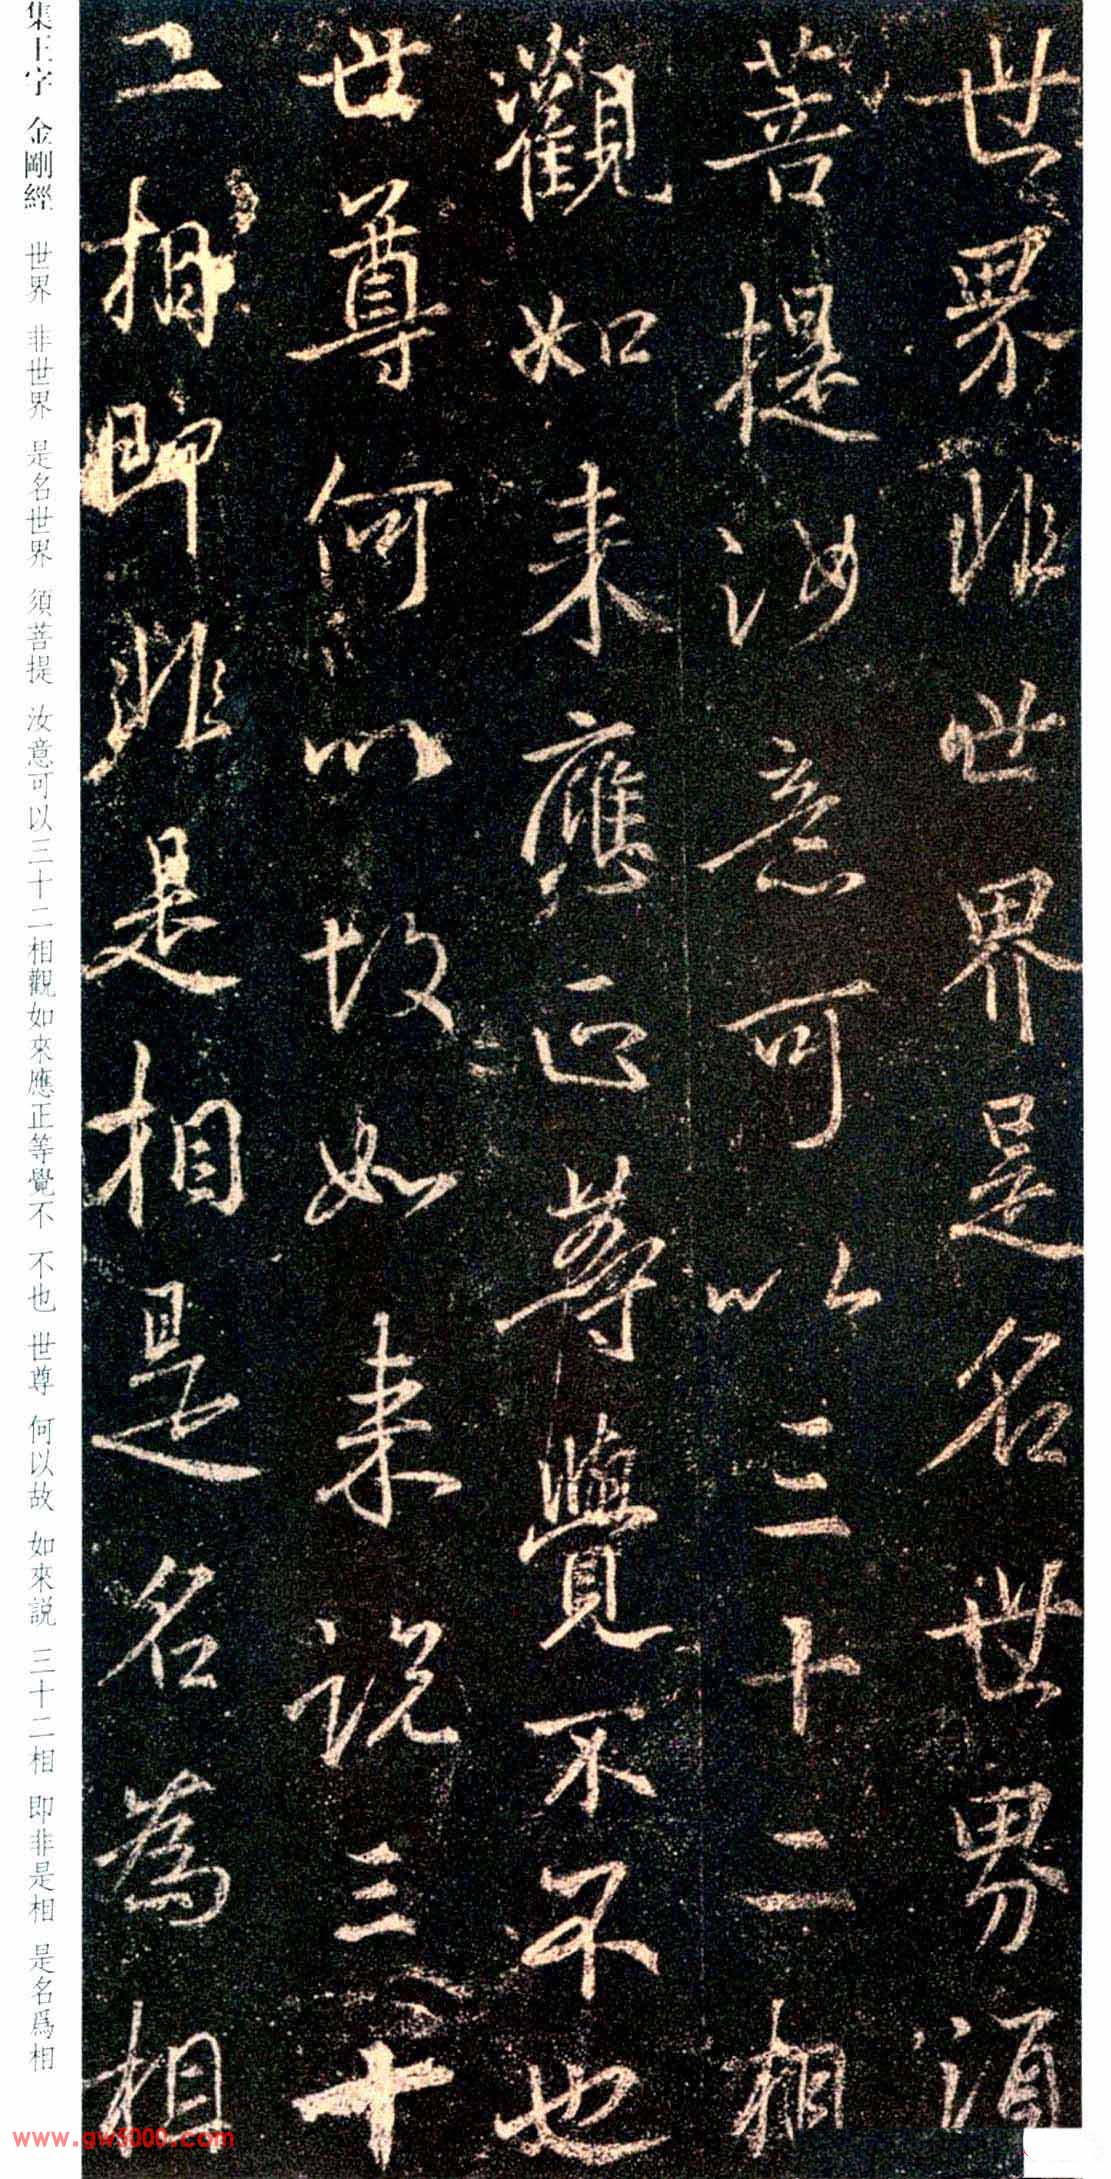 世界非世界是名世界須
菩提汝意可以三十二相
觀如来應正等覺不不也
世尊何以故如来説三十
二相即非是相是名為相
集王字 金剛經 世界 非世界 是名世界 須菩提 汝意可以三十二相觀如來應正等覺不 不也 世尊 何以故 如來説 三十二相 即非是相 是名爲相
www.gw5000.com